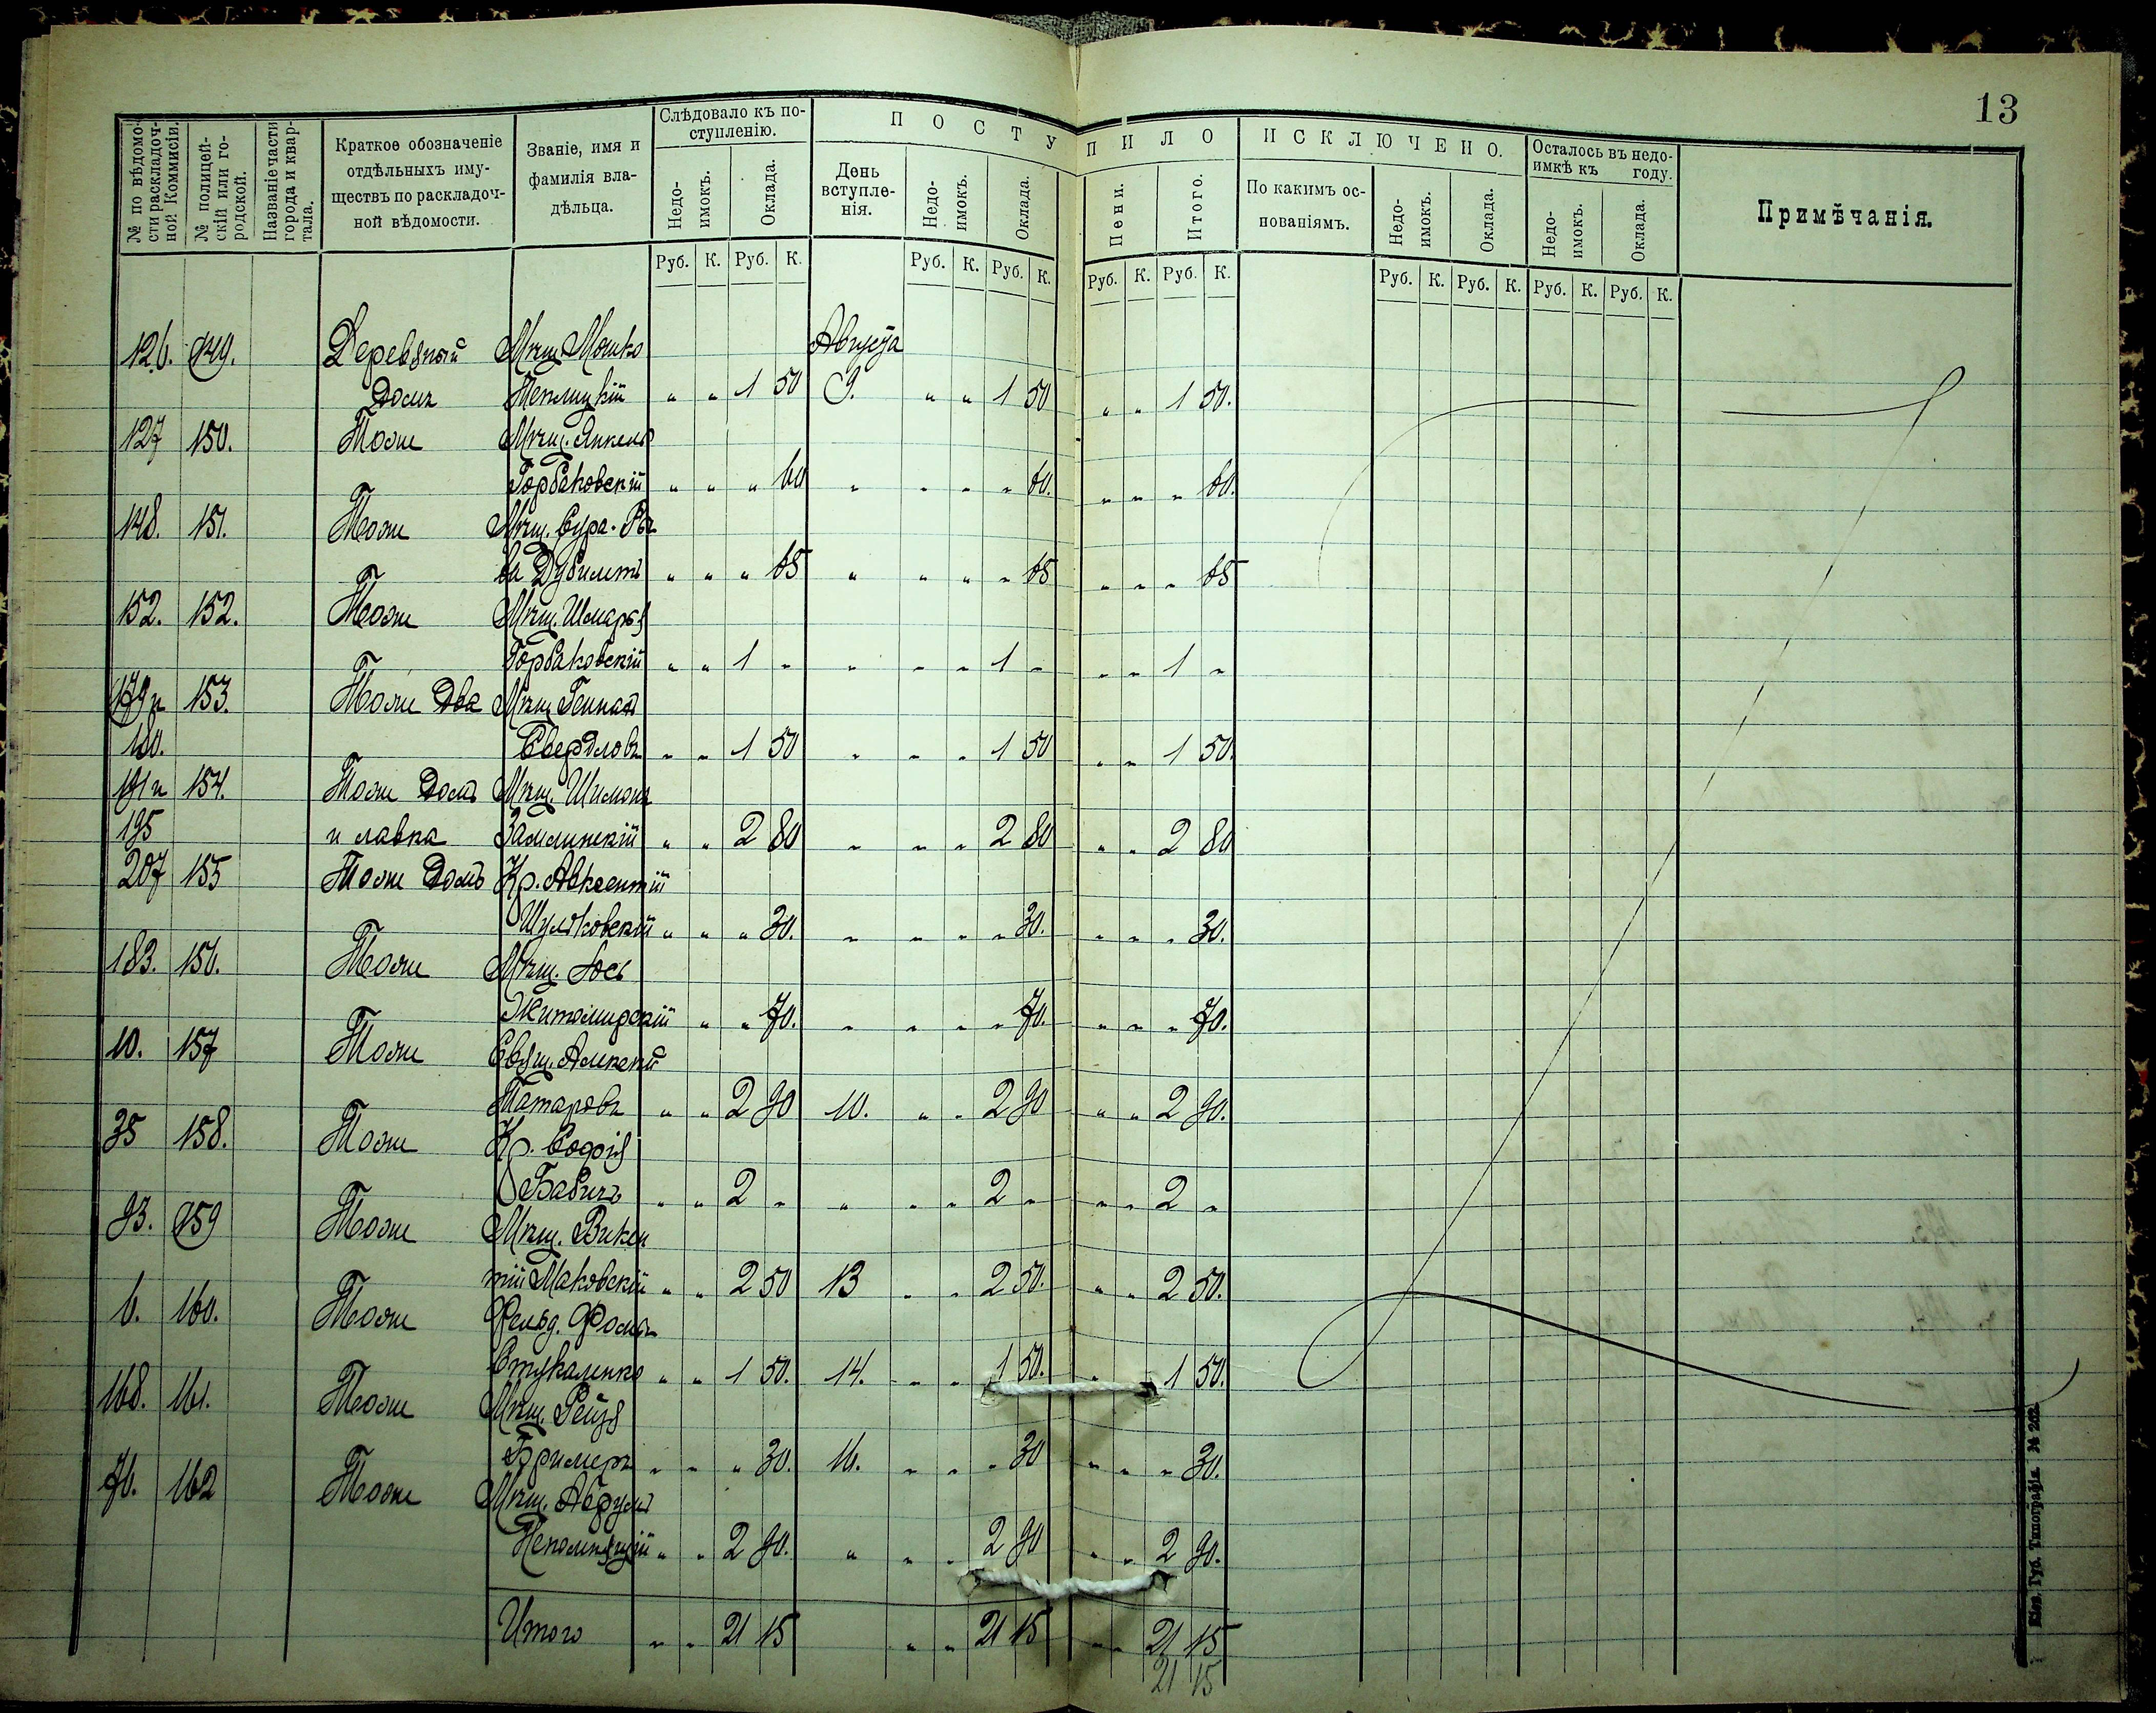 13
№ по вѣдомо-
сти раскладоч-
ной Коммисіи.
№ полицей-
скій или го-
родской.
Названіе части
города и квар-
тала.
Краткое обозначеніе
отдѣльныхъ иму-
ществъ по раскладоч-
ной вѣдомости.
Званіе, имя и
фамилія вла-
дѣльца.
Слѣдовало къ по-
ступленію.
Недо-
имокъ.
Оклада.
ПОСТУПИЛО
День
вступле-
нія.
Недо-
имокъ.
Оклада.
Пени.
Итого.
ИСКЛЮЧЕНО.
По какимъ ос-
нованіямъ.
Недо-
имокъ.
Оклада.
Осталось въ недо-
имкѣ къ году.
Недо-
имокъ.
Оклада.
Примѣчанія.
Руб. К. Руб. К. Руб. К. Руб. К. Руб. К. Руб. К. Руб. К. Руб. К. Руб. К. Руб. К.
126. 149. Деревяный Мѣщ. Мошко Августа
домъ Теплицкій " " 1 50 9. " " 1 50 " " 1 50.
127 150. Тоже Мѣщ. Янкель
Горбаковскій " " " 60 " " " " 60. " " " 60.
148. 151. Тоже Мѣщ. Сура-Рыв
ка Дубилетъ " " " 65 " " " " 65 " " " 65
152. 152. Тоже Мѣщ. Шмарья
Горбаковскій " " 1 " " " " 1 " " " 1 "
179 и 153. Тоже два Мѣщ.
180. Свердловъ " " 1 50 " " " 1 50 " " 1 50.
191 и 154. Тоже домъ Мѣщ. Шимонъ
195 и лавка Замлинскій " " 2 80 " " " 2 80 " " 2 80
207 155 Тоже домъ Кр. Авксентій
Шулковскій " " " 30. " " " " 30. " " " 30.
183. 156. Тоже Мѣщ. Іось
Житомирскій " " 70. " " " " 70. " " " 70.
10. 157 Тоже Свящ. Алексѣй
Татаровъ " " 2 90 10. " " 2 90 " " 2 90.
35 158. Тоже Кр. Софія
Бабичъ " " 2 " " " " 2 " " " 2 "
93. 159 Тоже Мѣщ. Викен
тій Маковскій " " 2 50 13 " " 2 50. " " 2 50.
6. 160. Тоже Фельд. Фома
Стукаленко " " 1 50. 14. " " 1 50. " 1 50.
168. 161. Тоже Мѣщ. Рейзя
Бримеръ " " " 30. 16. " " " 30 " " " 30.
76. 162 Тоже Мѣщ. Абрумъ
" " 2 90. " " " 2 90 " " 2 90.
Итого " " 21 15 " " 21 15 " " 21 15
21 15
Кіев. Губ. Типографія. № 202.